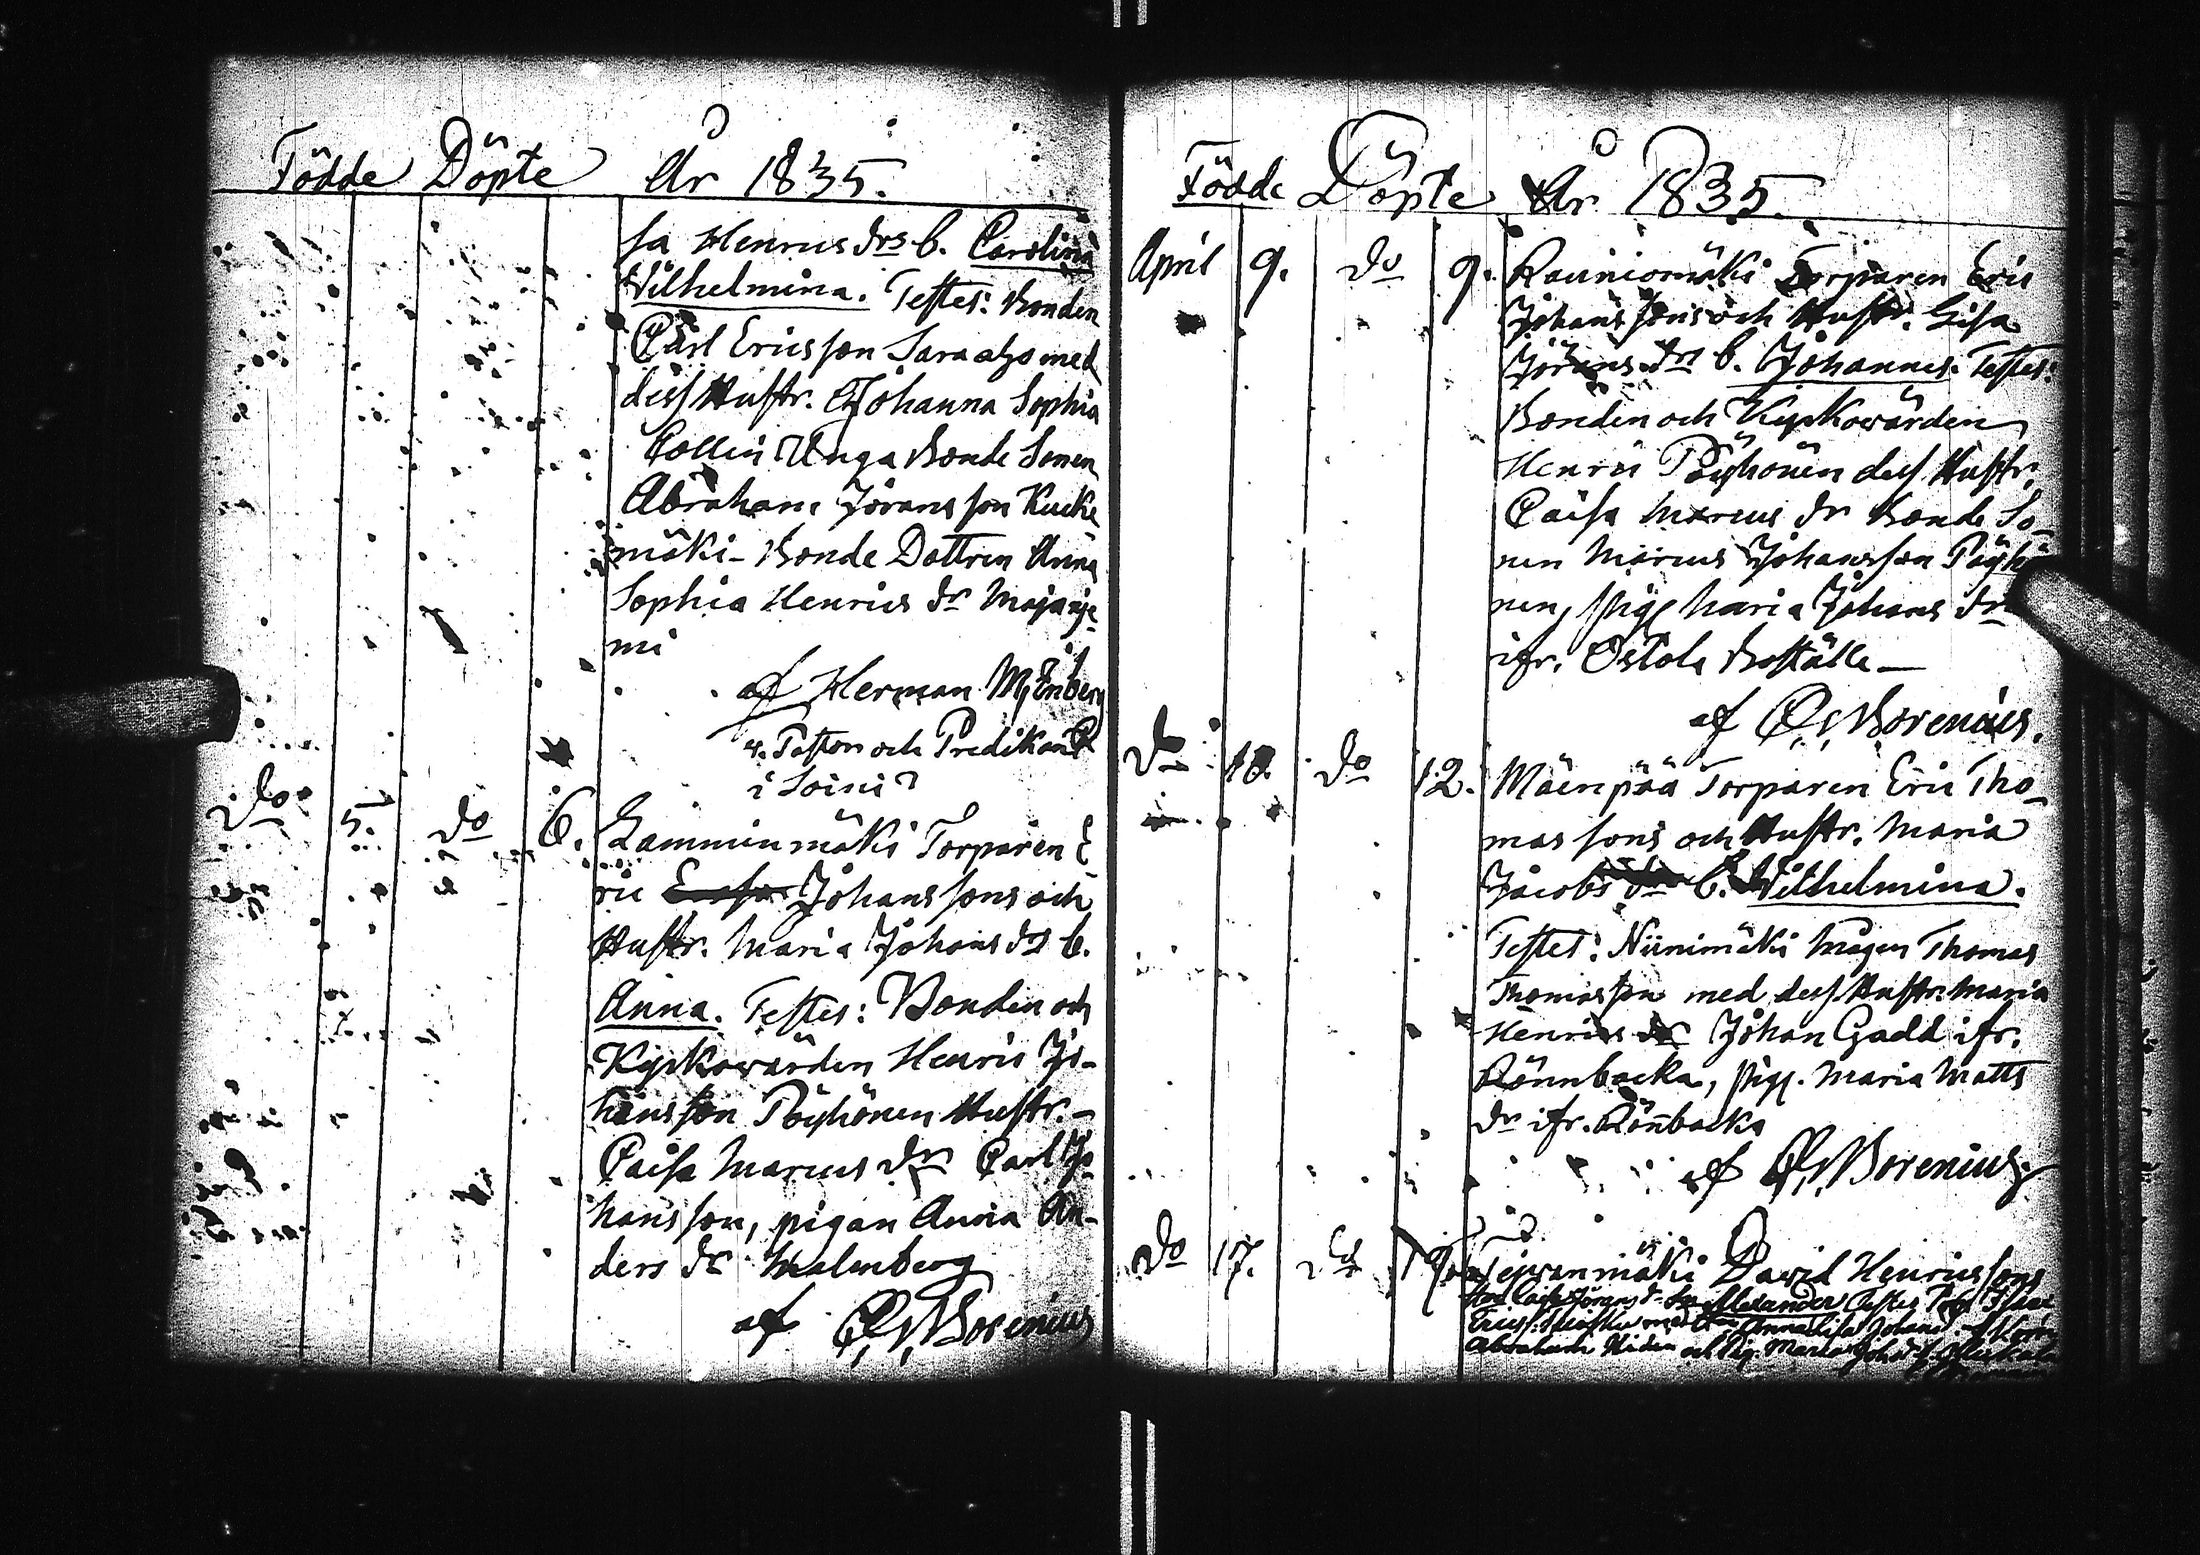 Födde Döpte År 1835.
sa Henrics drs b. Carolina
Wilhelmina. Testes: Bonden
Carl Ericsson Saraaho med
dess Hustr. Johanna Sophia
Collin Unga Bonde Sonen
Abraham Jöransson Kucke
mäki - Bonde Dottren Anna
Sophia Henrics dr Majanje
mi
af Herman Mjenberg
v. Pastor och Predikant
i Soini
do 5. do 6. Lamminmäki Torparen E
ric Johanssons och
Hustr. Maria Johans drs b.
Anna. Testes: Bonden och
Kyrkowärden Henric Jo-
hansson Pöyhönen Hustr. -
Caisa Marcus dr Carl Jo
hansson, pigan Anna An-
ders dr Malmberg
af C. G. Borenius
Födde Döpte År 1835.
April 9. do 9. Rauniomäki Torparen Eric
Johanssons och Hustr. Lisa
Jörans drs b. Johannes. Testes:
Bonden och Kyrkowärden
Henric Pöyhönen dess Hustr.
Caisa Marcus dr Bonde So-
nen Marcus Johansson Pöyhö
nen, pig. Maria Johans dr
ifr. Ostola Boställe -
af C. G. Borenius.
do 10. do 12. Mäenpää Torparen Eric Tho-
massons och Hustr. Maria
Jacobs dr b. Wilhelmina.
Testes: Niinimäki Mågen Thomas
Thomasson med dess Hustr. Maria
Henrics dr Johan Gadd ifr.
Rönnbacka, pig. Maria Matts
dr ifr. Rönnbacka
af C. G. Borenius
do 17. do 19 David Henricssons
Jörans d. Son Alexander Testes
Erics: med Anna Lisa
Abraham Hiden och Pig. Maria